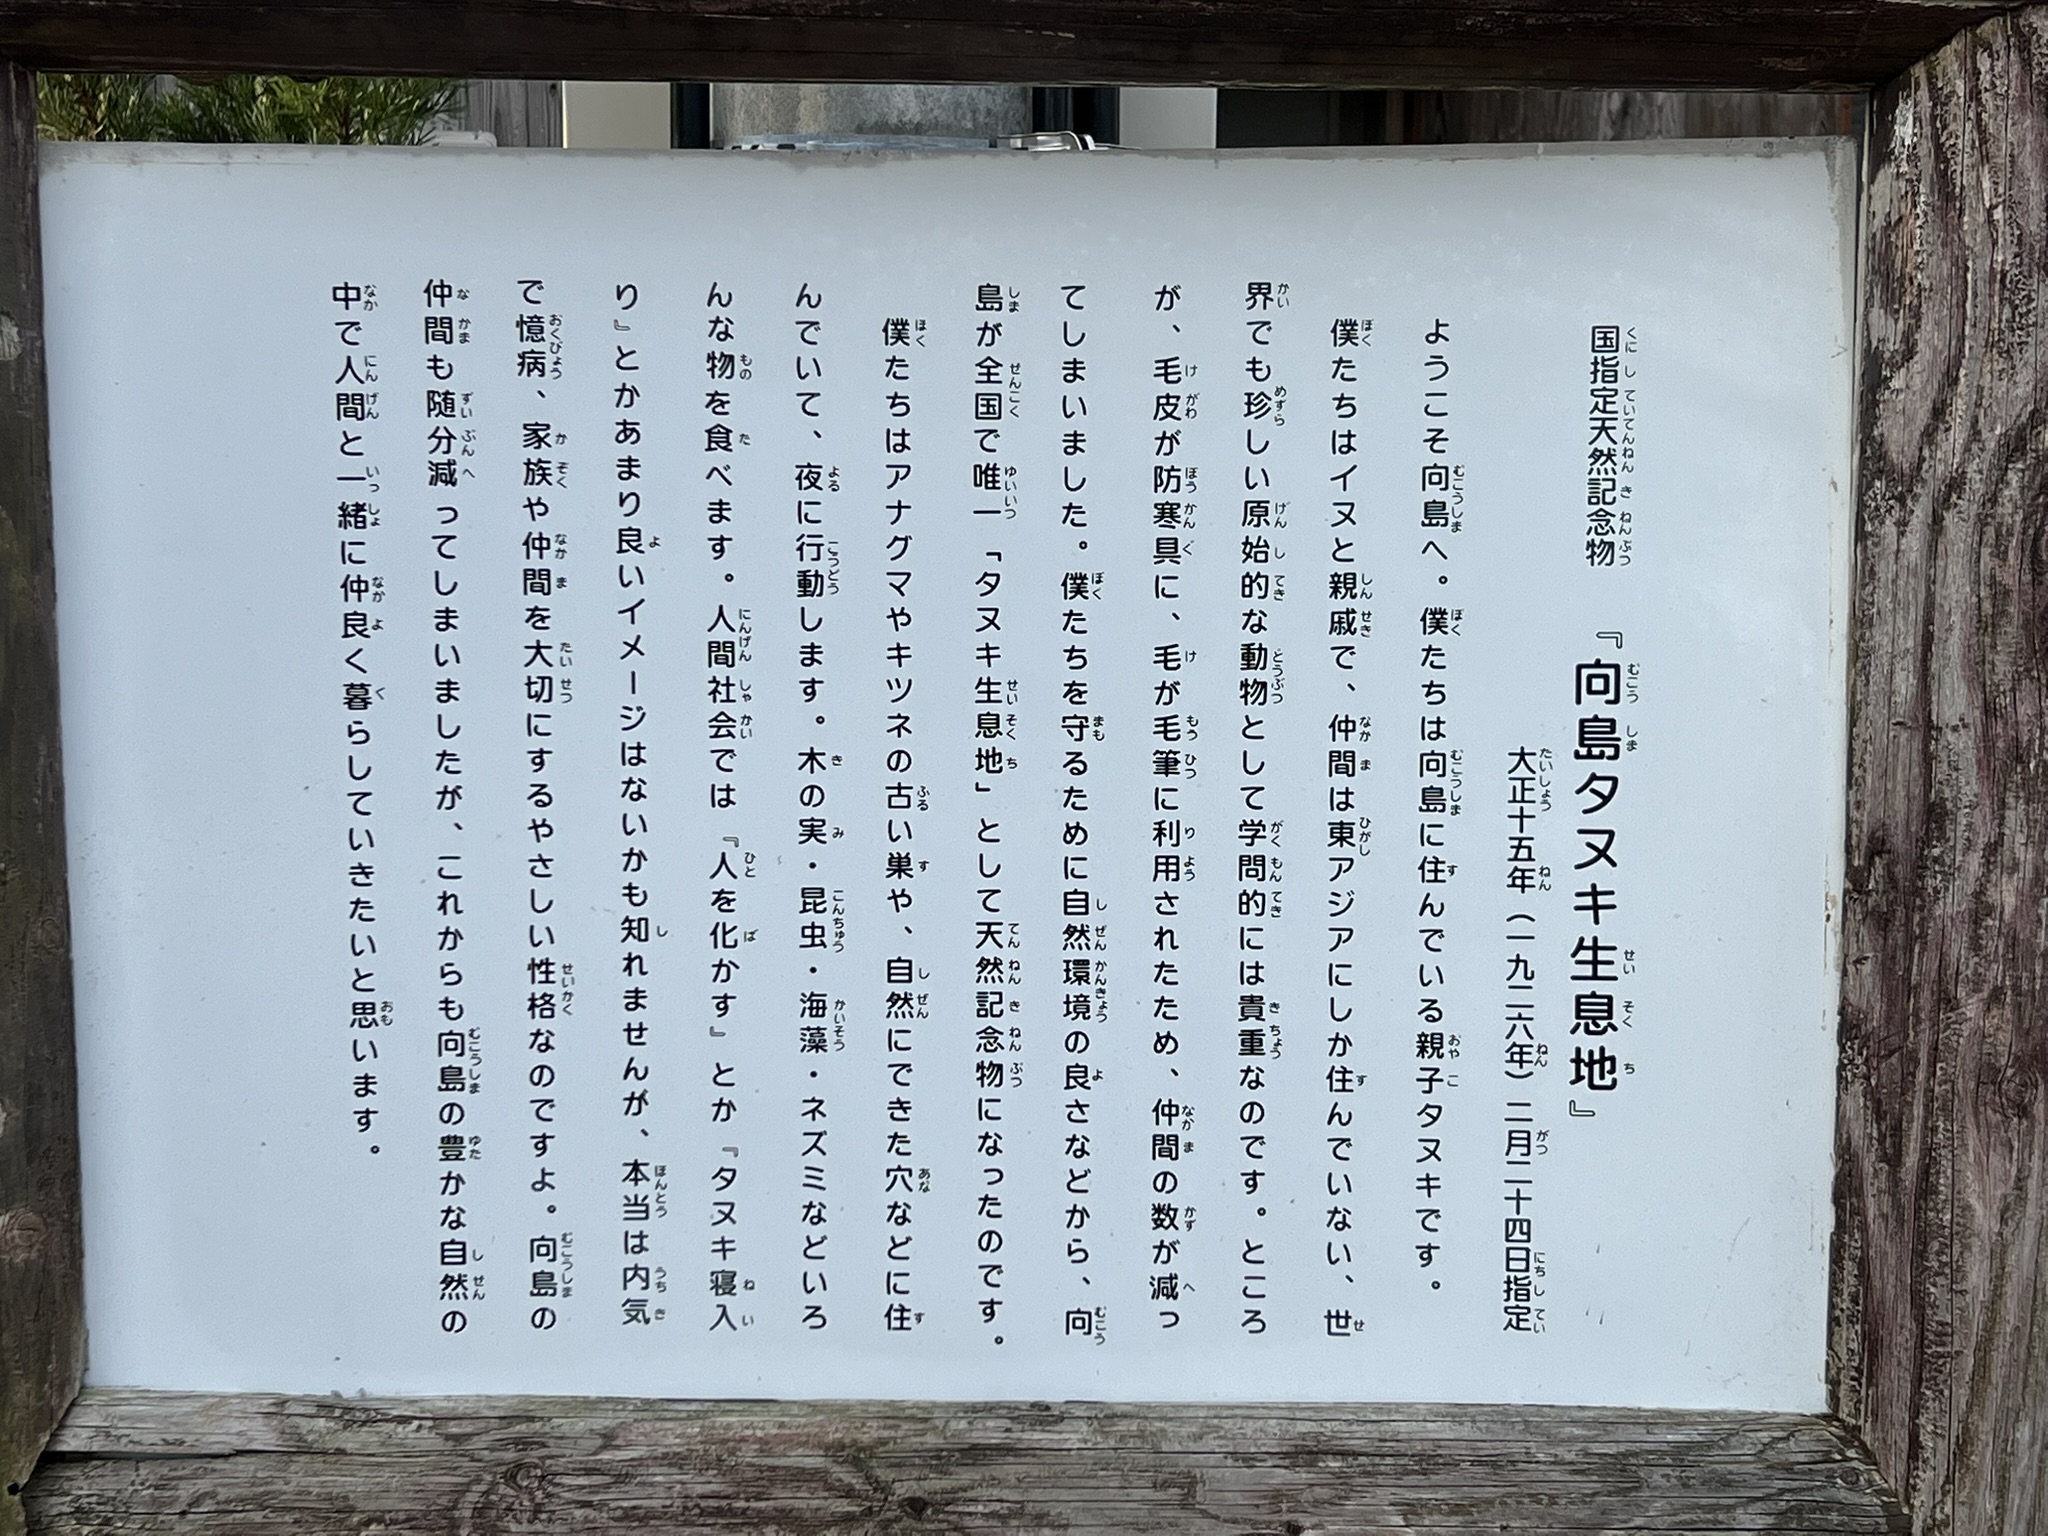 国指定天然記念物 『向島タヌキ生息地』
大正十五年(一九二六年)二月二十四日指定
ようこそ向島へ。僕たちは向島に住んでいる親子タヌキです。
僕たちはイヌと親戚で、仲間は東アジアにしか住んでいない、世
界でも珍しい原始的な動物として学問的には貴重なのです。ところ
が、毛皮が防寒具に、毛が毛筆に利用されたため、仲間の数が減っ
てしまいました。僕たちを守るために自然環境の良さなどから、向
島が全国で唯一「タヌキ生息地」として天然記念物になったのです。
僕たちはアナグマやキツネの古い巣や、自然にできた穴などに住
んでいて、夜に行動します。木の実・昆虫・海藻・ネズミなどいろ
んな物を食べます。人間社会では『人を化かす』とか『タヌキ寝入
り』とかあまり良いイメージはないかも知れませんが、本当は内気
で憶病、家族や仲間を大切にするやさしい性格なのですよ。向島の
仲間も随分減ってしまいましたが、これからも向島の豊かな自然の
中で人間と一緒に仲良く暮らしていきたいと思います。